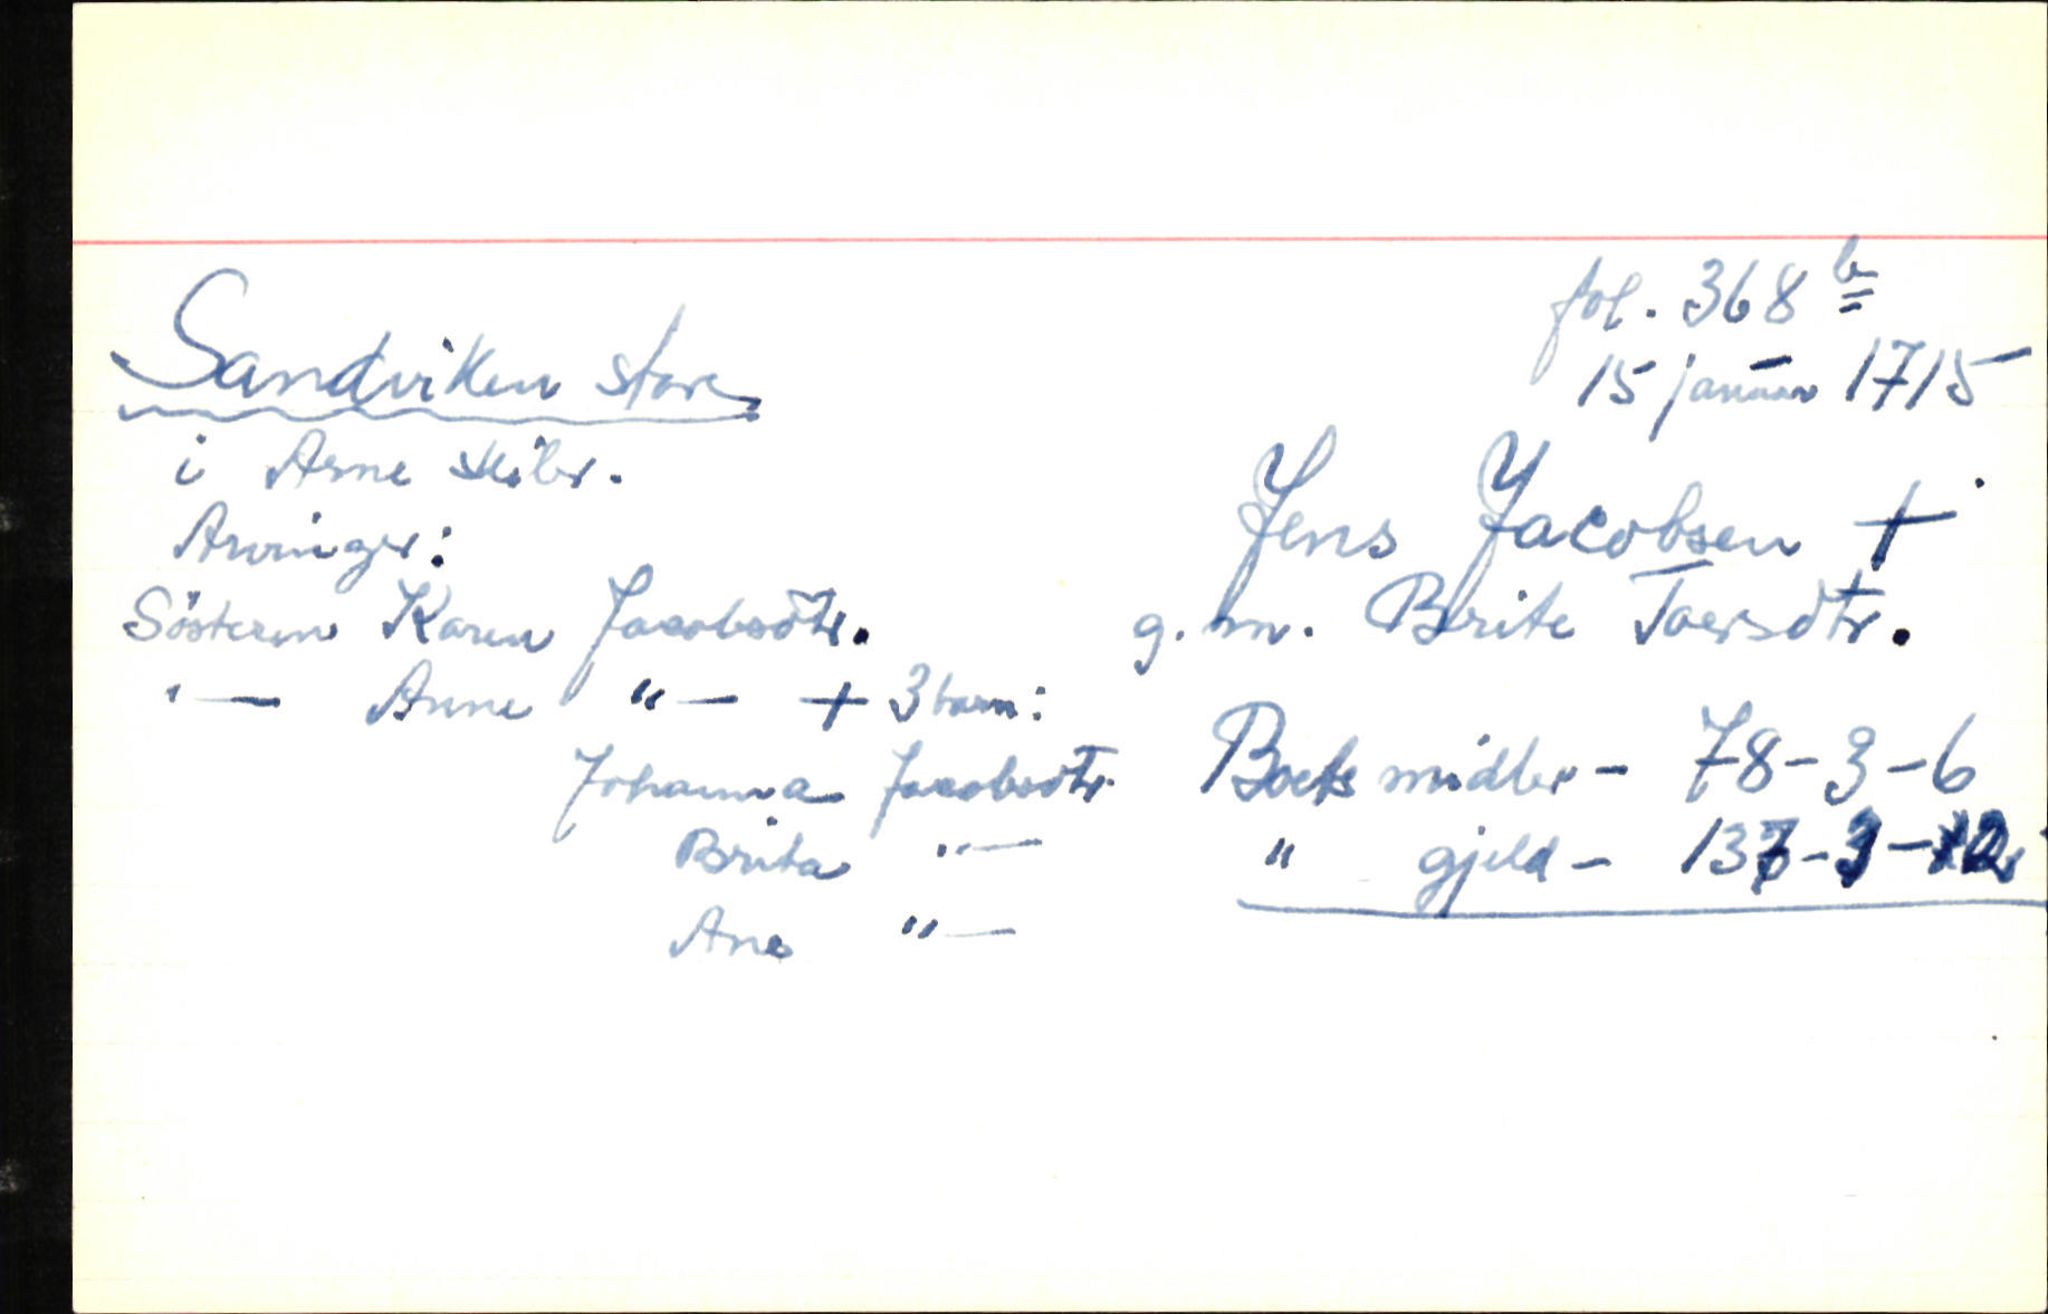 fol. 368 b
Sandviken store
15 januar 1715
i Arne skibr.
Jens Jacobsen +
Arvinger:
g. m. Brite Taersdtr.
Søsteren Karen Jacobsdtr.
"— Anne "— + 3 barn:
Johanna Jacobsdtr.
Brita "—
Ane "—
Boets midler - 78-3-6
" gjeld - 137-3-12